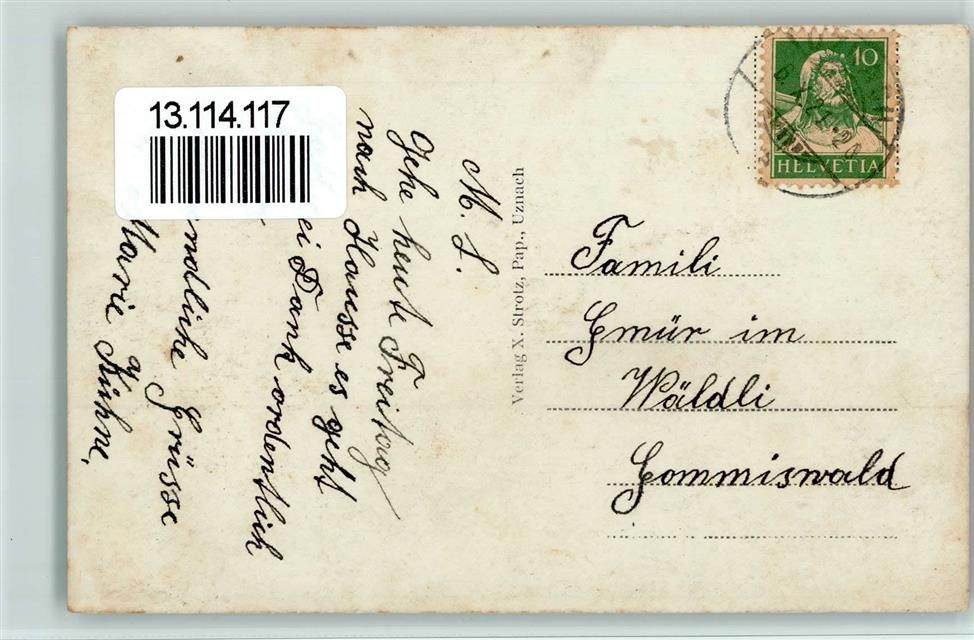 13.114.117
M. L.
Gehe heute Freitag
nach Hausse es geht
ei Dank ordentlich
ndliche Grüsse
Marie Kühne.
Verlag X. Strotz, Pap., Uznach
10
HELVETIA
Famili
Gmür im
Wäldli
Gommiswald